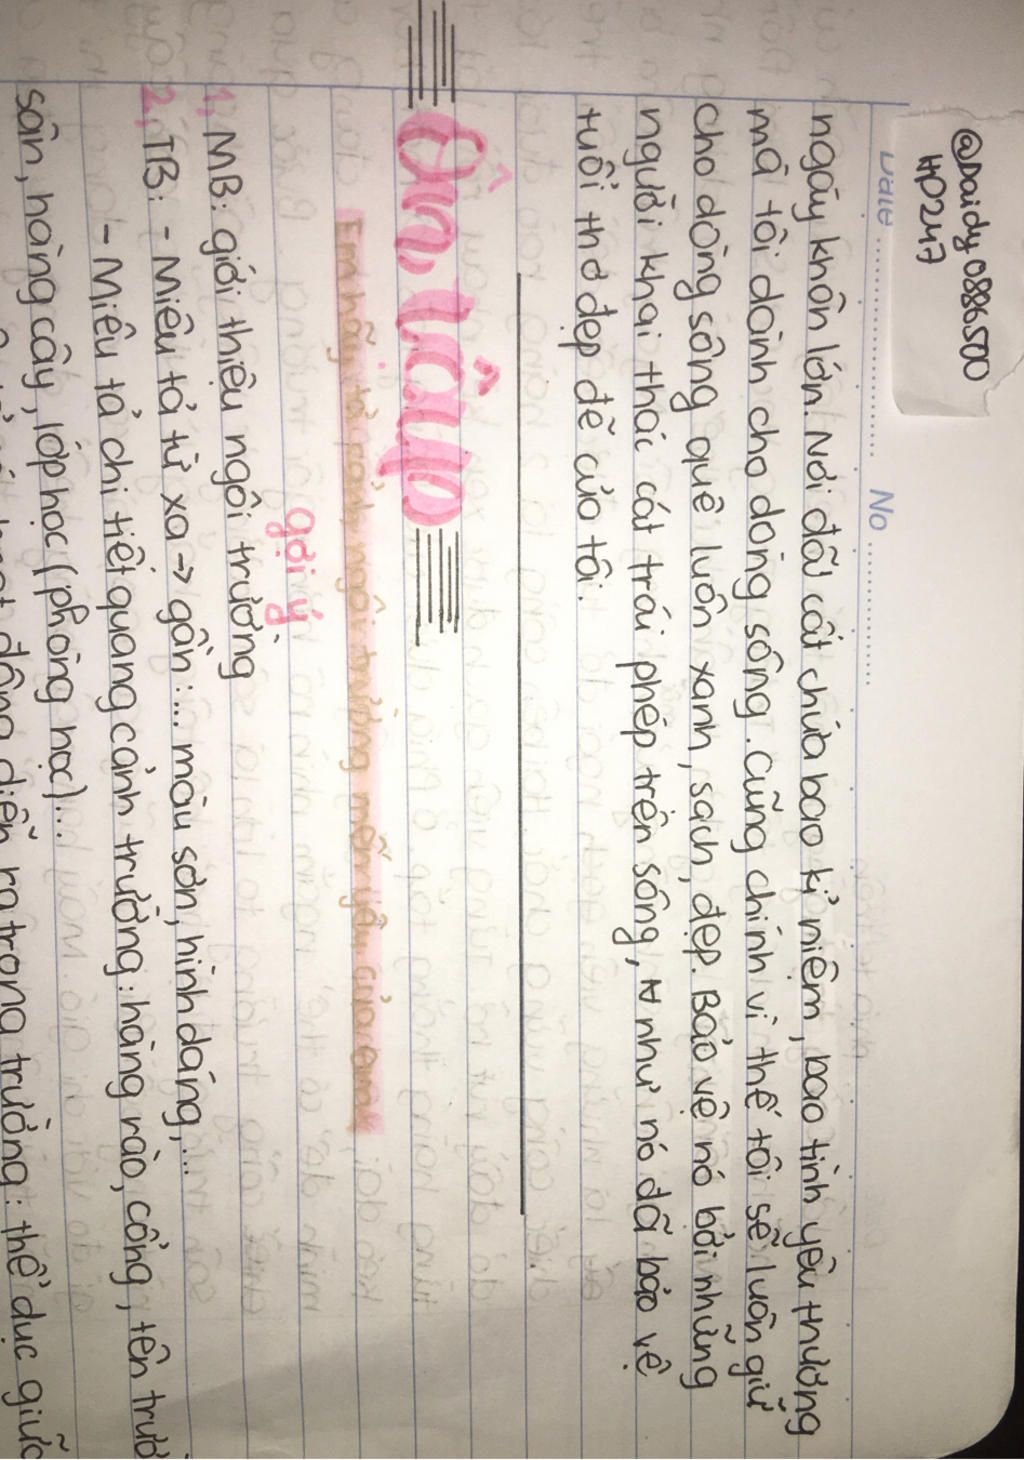 @Daidy0886500
HD247
Date No
ngày khôn lớn. Nơi đã cất chứa bao kỉ niệm, bao tình yêu thương
mà tôi dành cho dòng sông. Cũng chính vì thế tôi sẽ luôn giữ
cho dòng sông quê luôn xanh, sạch, đẹp. Bảo vệ nó bởi những
người khai thác cát trái phép trên sông, như nó đã bảo vệ
tuổi thơ đẹp đẽ của tôi.
Ôn tập
Em hãy tả cảnh ngôi trường mến yêu của em
gợi ý
1, MB: giới thiệu ngôi trường
2, TB: - Miêu tả từ xa → gần: ... màu sơn, hình dáng, ...
- Miêu tả chi tiết quang cảnh trường: hàng rào, cổng, tên trườ
sân, hàng cây, lớp học (phòng học)...
động diễn ra trong trường: thể dục giữa